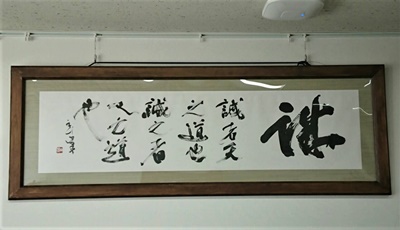 誠
誠者天
之道也
誠之者
人之道
也